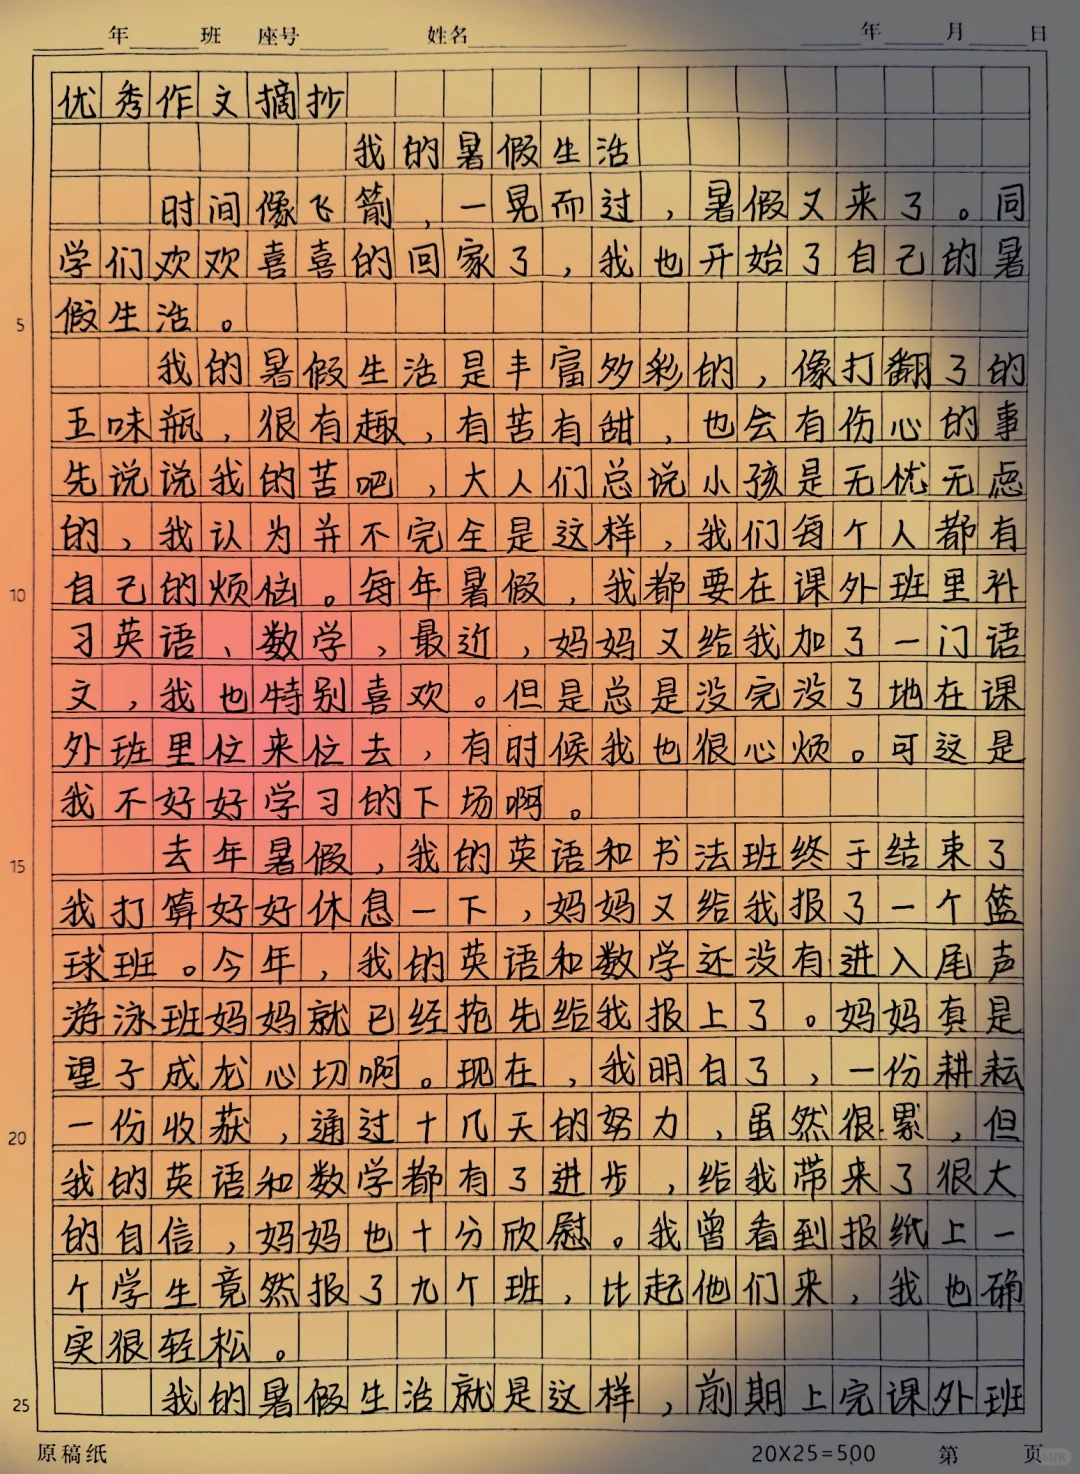 年 班 座号 姓名 年 月 日
优秀作文摘抄
我的暑假生活
时间像飞箭，一晃而过，暑假又来了。同
学们欢欢喜喜的回家了，我也开始了自己的暑
5 假生活。
我的暑假生活是丰富多彩的，像打翻了的
五味瓶，很有趣，有苦有甜，也会有伤心的事
先说说我的苦吧，大人们总说小孩是无忧无虑
的，我认为并不完全是这样，我们每个人都有
10 自己的烦恼。每年暑假，我都要在课外班里补
习英语、数学，最近，妈妈又给我加了一门语
文，我也特别喜欢。但是总是没完没了地在课
外班里位来位去，有时候我也很心烦。可这是
我不好好学习的下场啊。
15 去年暑假，我的英语和书法班终于结束了
我打算好好休息一下，妈妈又给我报了一个篮
球班。今年，我的英语和数学还没有进入尾声
游泳班妈妈就已经抢先给我报上了。妈妈真是
望子成龙心切啊。现在，我明白了，一份耕耘
20 一份收获，通过十几天的努力，虽然很累，但
我的英语和数学都有了进步，给我带来了很大
的自信，妈妈也十分欣慰。我曾看到报纸上一
个学生竟然报了九个班，比起他们来，我也确
实很轻松。
25 我的暑假生活就是这样，前期上完课外班
原稿纸 20X25=500 第 页